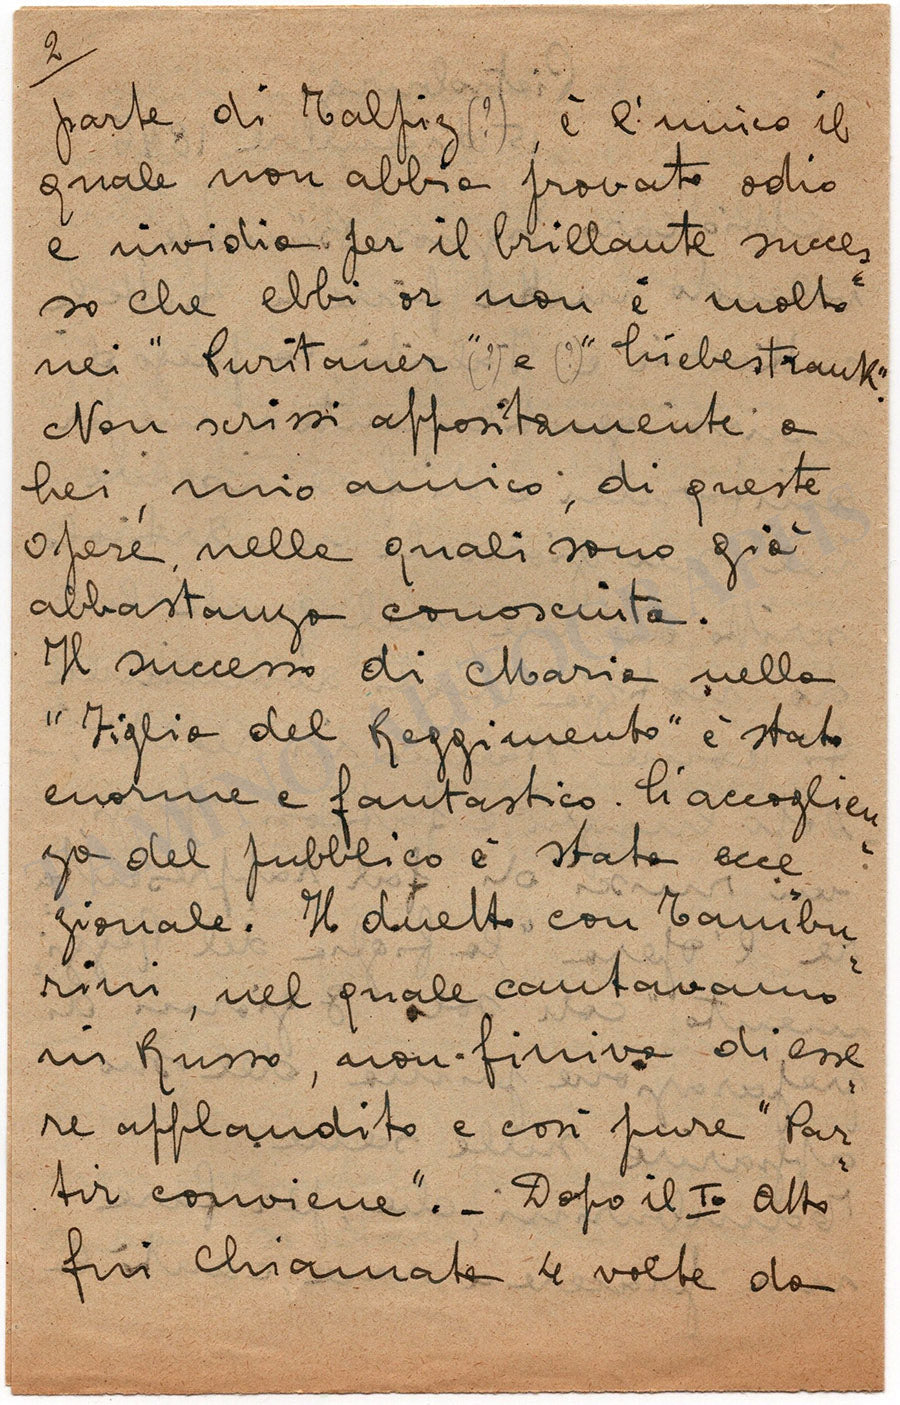 2
parte di Talfiz (?), è l'unico il
quale non abbia provato odio
e invidia per il brillante succes=
so che ebbi or non è molto
nei "Puritaner" (?) e (?) "Liebestrank".
Non scrissi appositamente a
Lei, mio amico, di queste
opere, nelle quali sono già
abbastanza conosciuta.
Il successo di Maria nella
"Figlia del Reggimento" è stato
enorme e fantastico. L'accoglien=
za del pubblico è stata ecce=
zionale. Il duetto con Tambu=
rini, nel quale cantavamo
in Russo, non finiva di esse=
re applaudito e così pure "Par=
tir conviene". - Dopo il Io Atto
fui chiamata 4 volte da